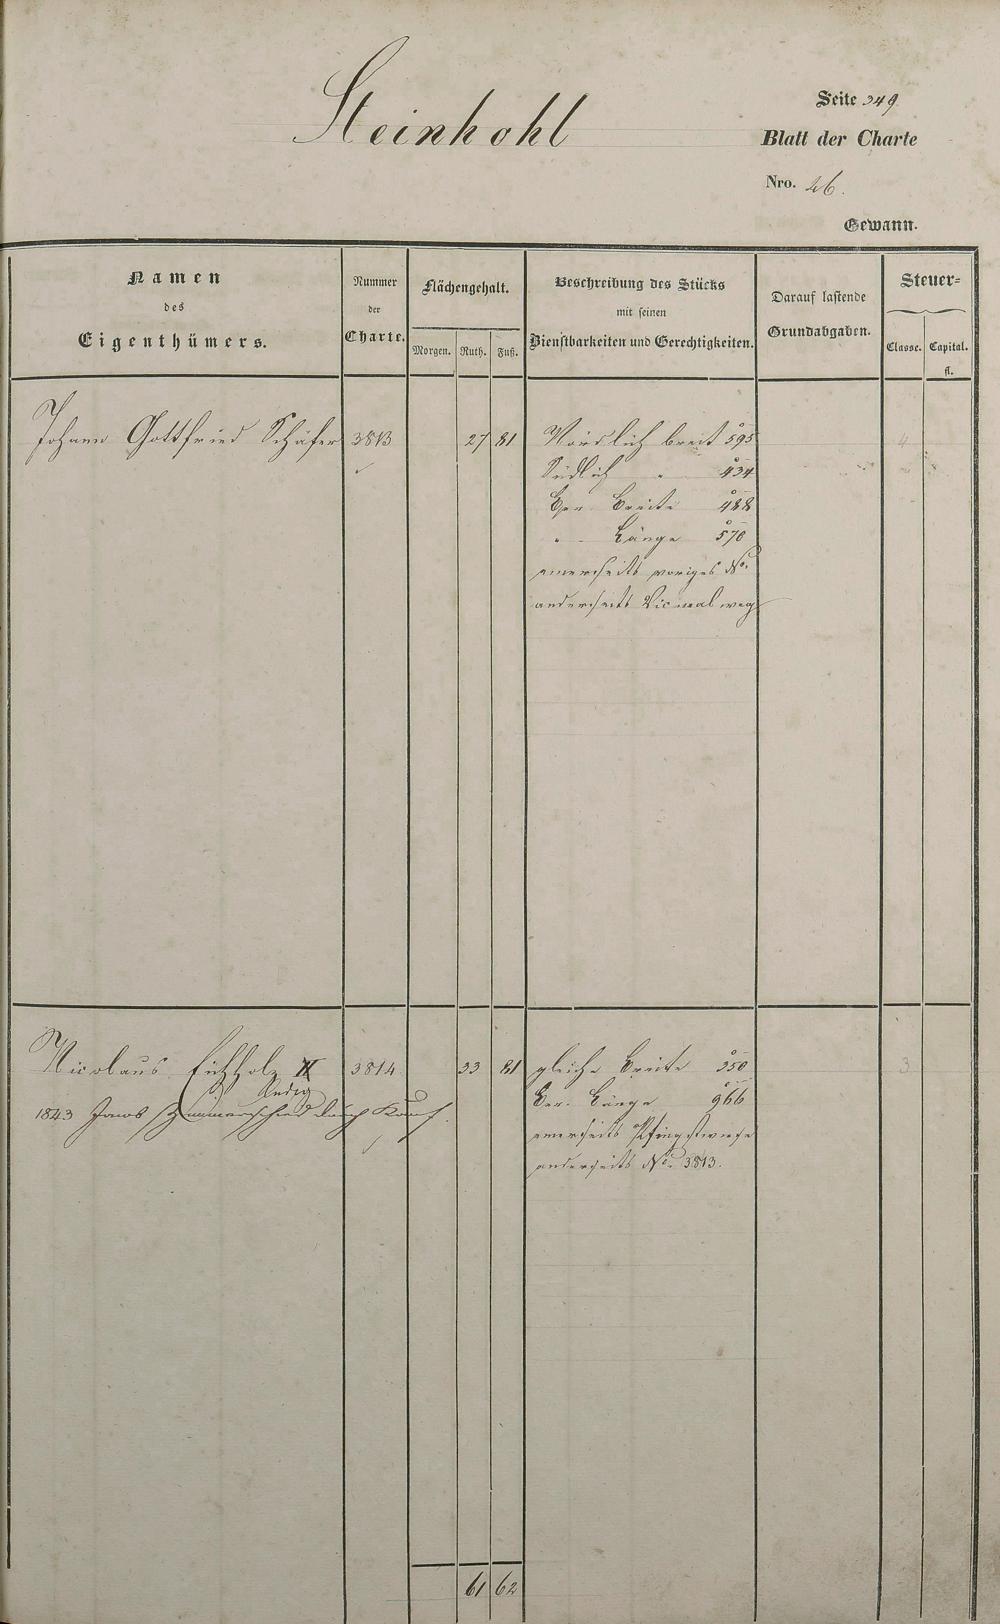 Steinhohl
Seite 349
Blatt der Charte
Nro. 26.
Gewann.
Namen
des
Eigenthümers.
Nummer
der
Charte.
Flächengehalt.
Morgen. Ruth. Fuß.
Beschreibung des Stücks
mit seinen
Dienstbarkeiten und Gerechtigkeiten.
Darauf lastende
Grundabgaben.
Steuer-
Classe. Capital.
fl.
Johann Gottfried Schäfer 3813 27 81 Nördlich breit 595 4
Südlich " 434
Ger. Breite 488
" Länge 570
einerseits voriges No.
anderseits Vicinalweg
Nicolaus Eichholz II 3814 33 81 gleiche Breite 350 3
ledig
1843 Jacob Zimmerschied durch Kauf.
Ger. Länge 966
einerseits Pfingstwiese
anderseits No. 3813.
61 62